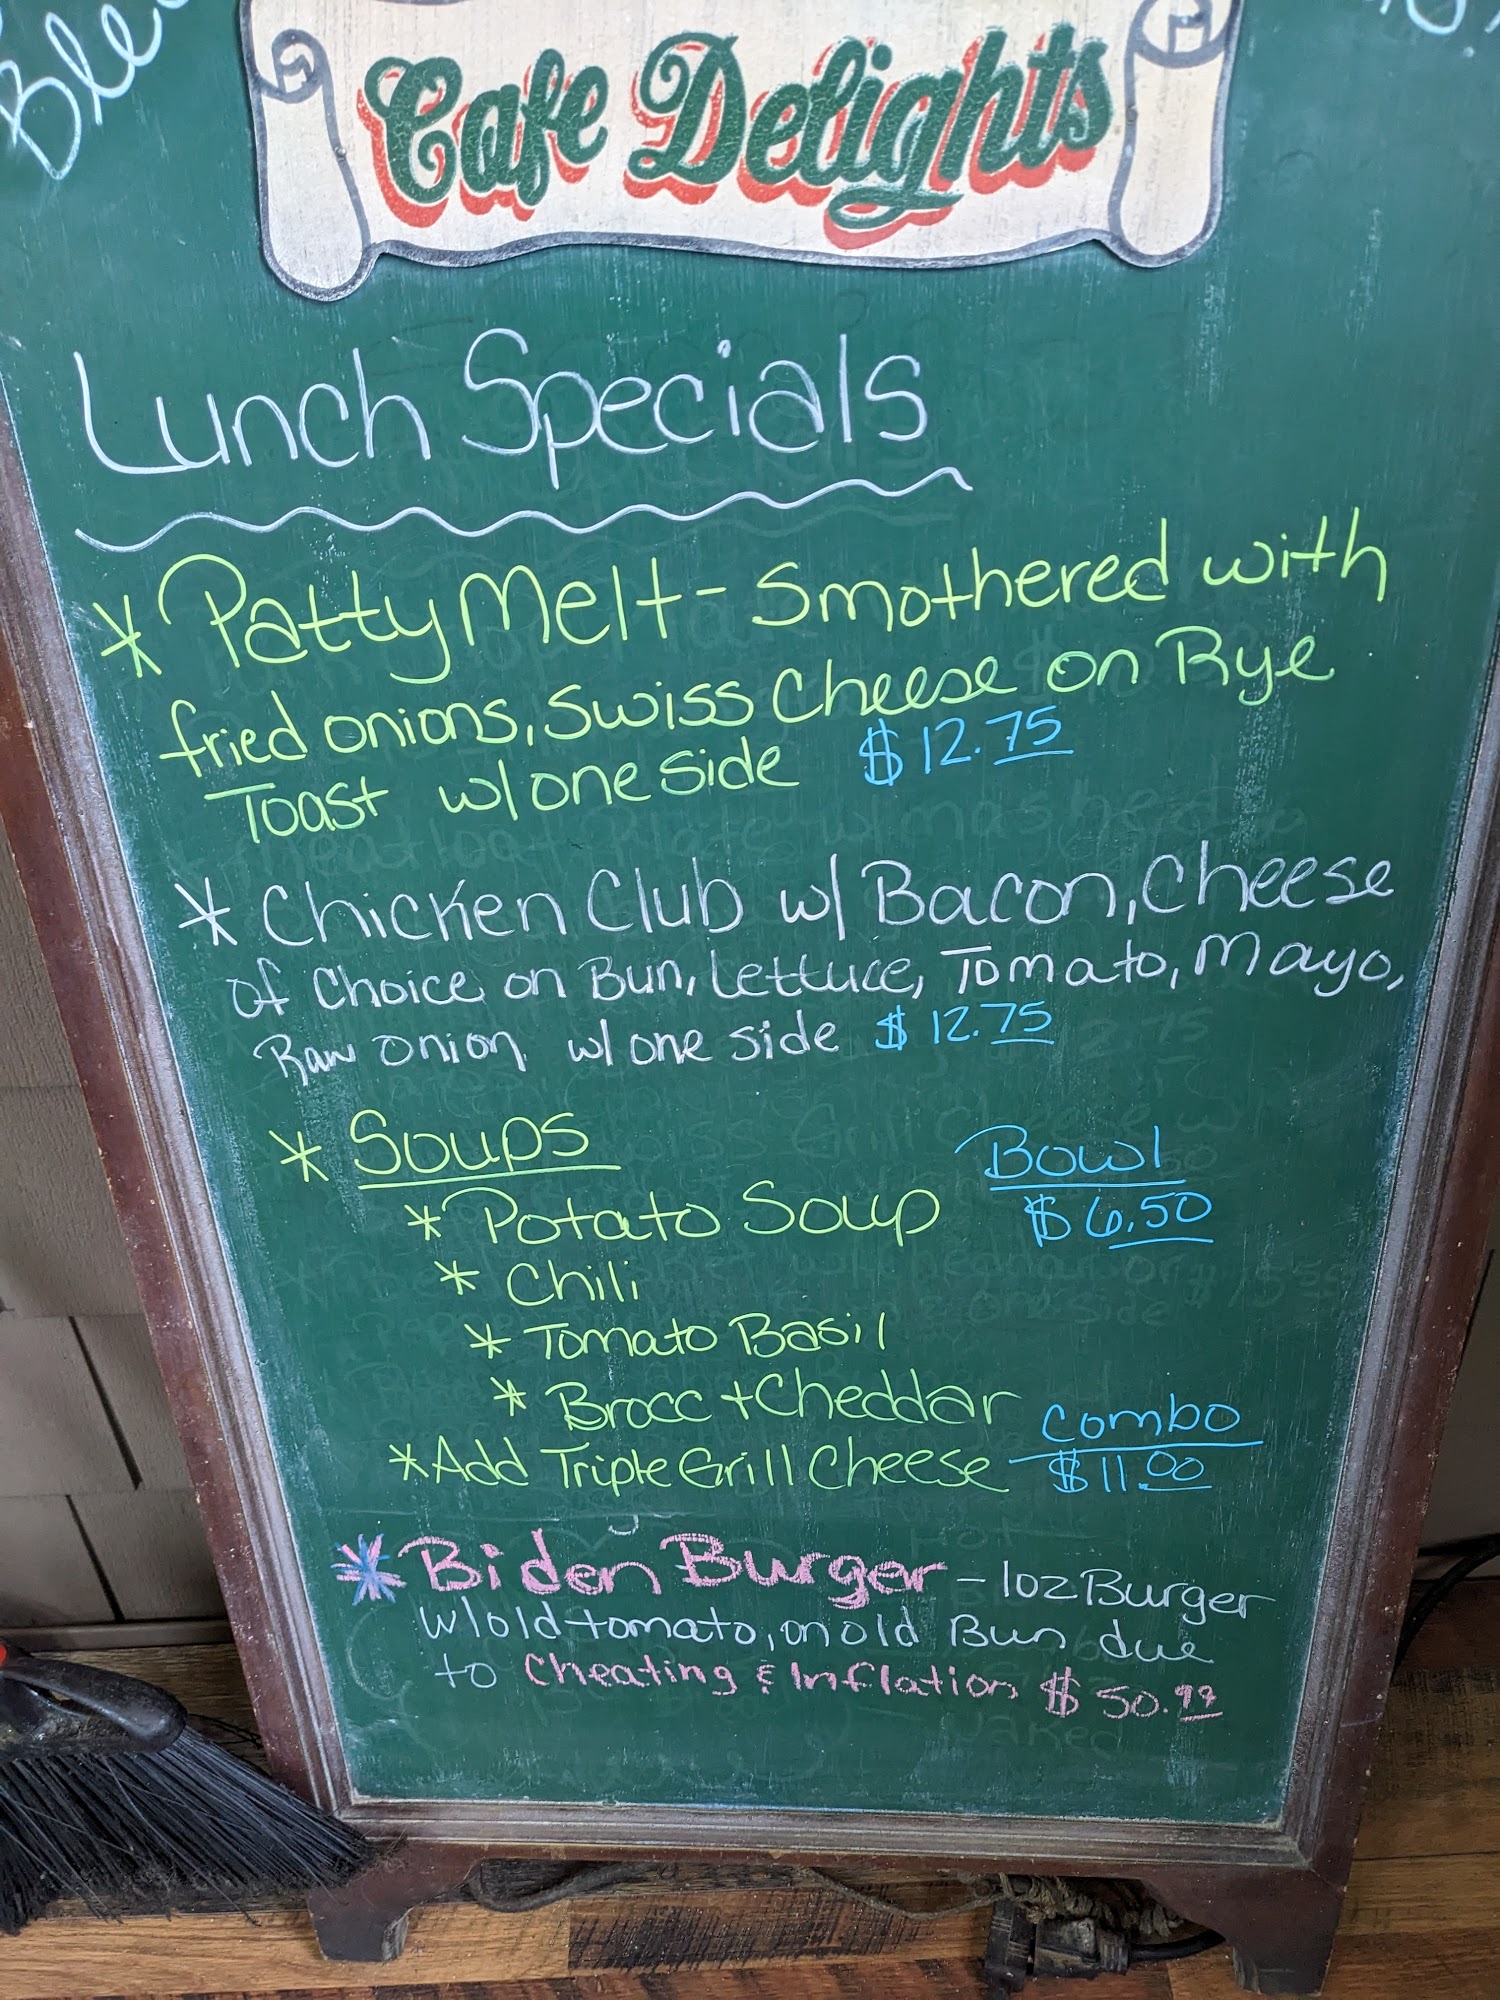 Cafe Delights
Lunch Specials
* Patty Melt - Smothered with
fried onions, Swiss Cheese on Rye
Toast w/ one side $12.75
* Chicken Club w/ Bacon, Cheese
of Choice on Bun, Lettuce, Tomato, Mayo,
Raw Onion w/ one side $12.75
* Soups Bowl
* Potato Soup $6.50
* Chili
* Tomato Basil
* Brocc + Cheddar Combo
* Add Triple Grill Cheese - $11.00
* Biden Burger - 1oz Burger
w/ old tomato, on old Bun due
to Cheating & Inflation $50.99